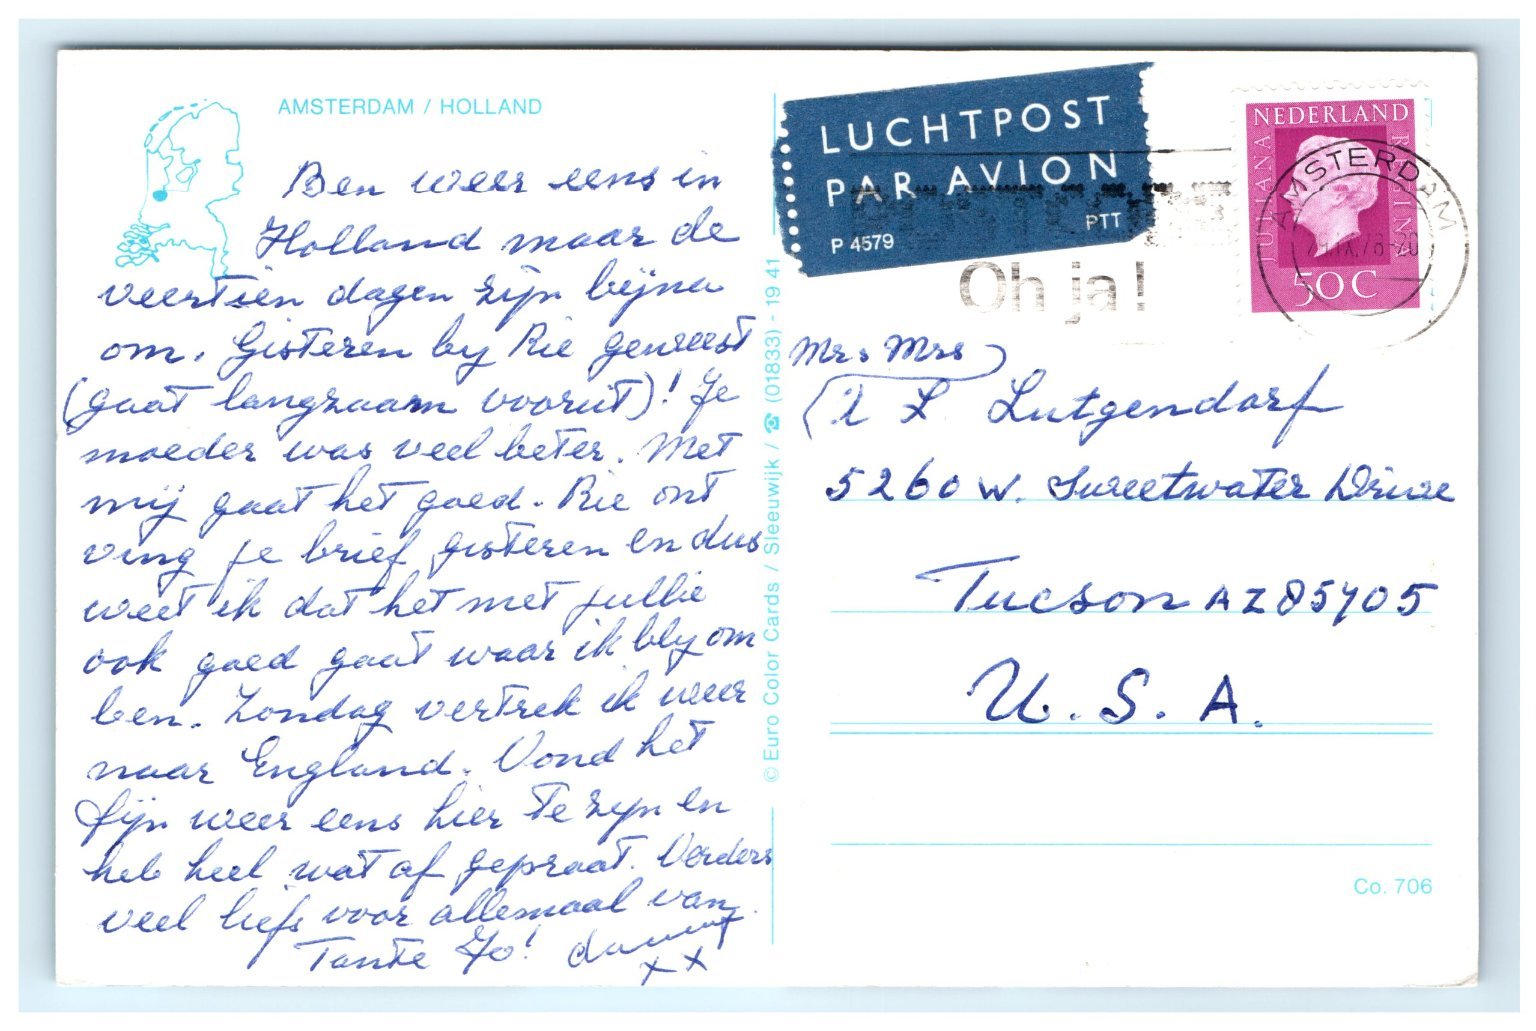 AMSTERDAM / HOLLAND
Ben weer eens in
Holland maar de
veertien dagen zijn bijna
om. Gisteren by Rie geweest
(gaat langzaam vooruit)! Je
moeder was veel beter. Met
mij gaat het goed. Rie ont
ving je brief gisteren en dus
weet ik dat het met jullie
ook goed gaat waar ik bly om
ben. Zondag vertrek ik weer
naar England. Vond het
fijn weer eens hier te zyn en
heb heel wat af gepraat. Verders
veel liefs voor allemaal van
Tante Jo!
x x
© Euro Color Cards / Sleeuwijk / ☎ (01833) - 19 41
LUCHTPOST
PAR AVION
PTT
P 4579
Oh ja!
NEDERLAND
JULIANA REGINA
50C
AMSTERDAM
Mrs Mrs
L. Lutgendorf
5260 W. Sweetwater Drive
Tucson AZ 85705
U.S.A.
Co. 706